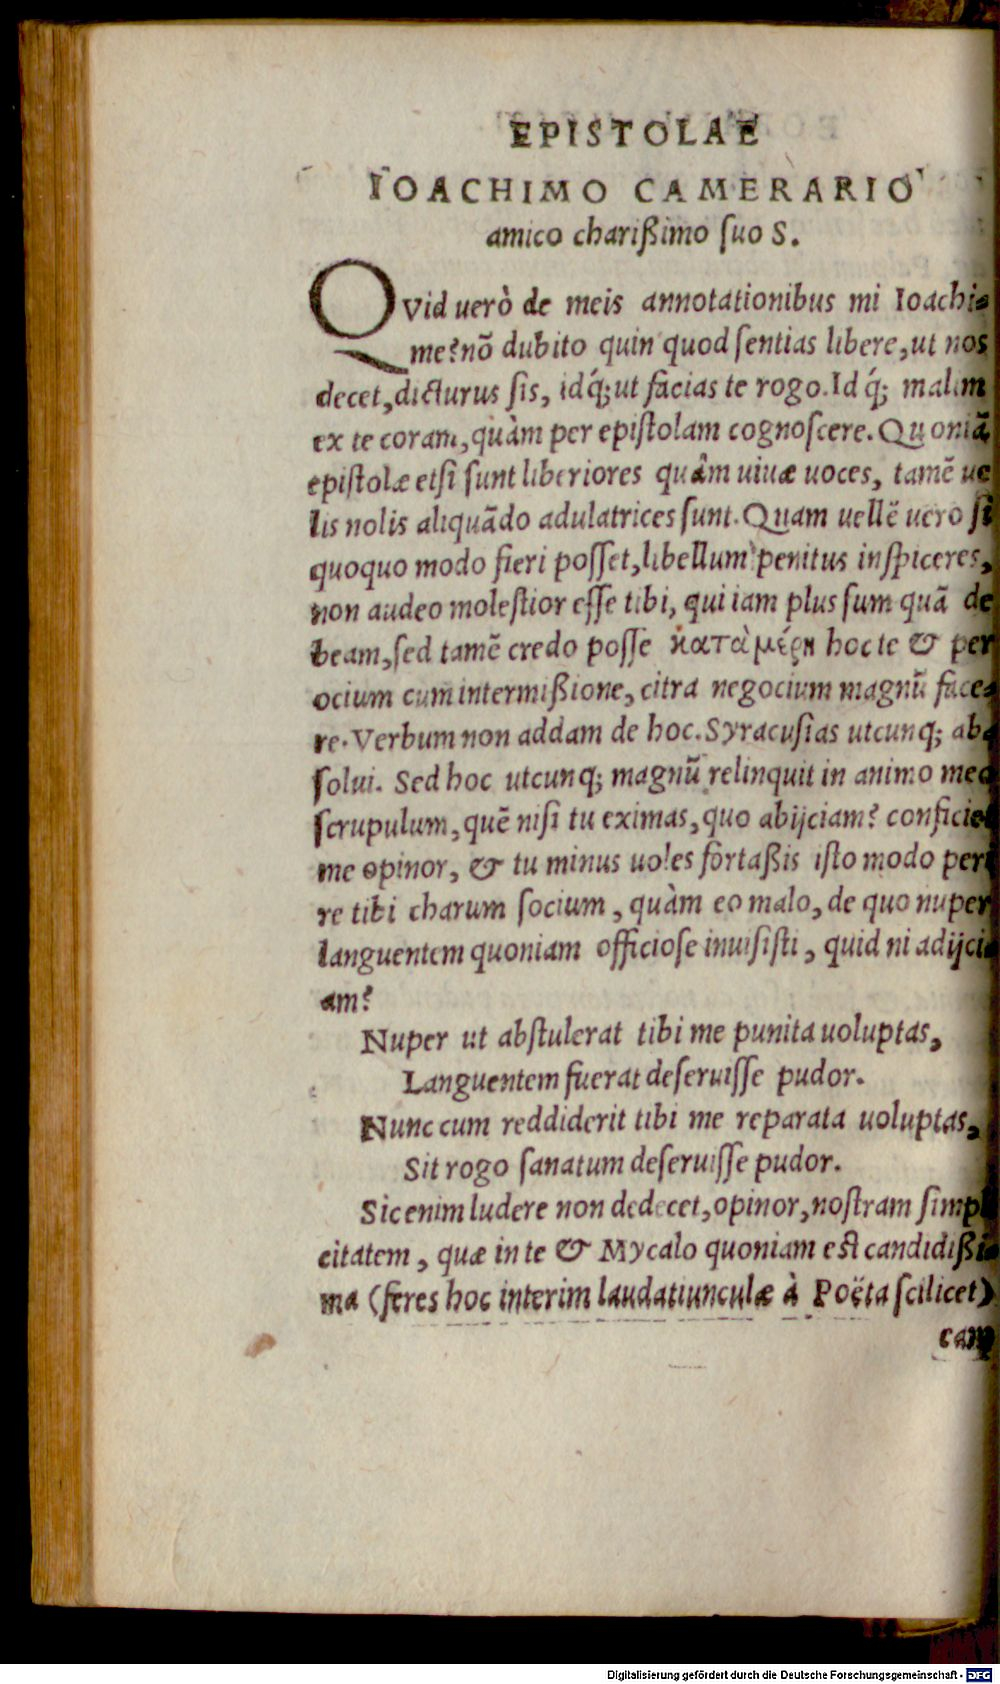 EPISTOLAE
IOACHIMO CAMERARIO
amico charißimo ſuo S.
QVid uerò de meis annotationibus mi Ioachi-
me? nõ dubito quin quod ſentias libere, ut nos
decet, dicturus ſis, idq́; ut facias te rogo. Id q́; malim
ex te coram, quàm per epiſtolam cognoſcere. Quoniã
epiſtolæ etſi ſunt liberiores quâm uiuæ uoces, tamẽ ue
lis nolis aliquãdo adulatrices ſunt. Quam uellẽ uero ſi
quoquo modo fieri poſſet, libellum penitus inſpiceres,
non audeo moleſtior eſſe tibi, qui iam plus ſum quã de
beam, ſed tamẽ credo poſſe κατὰ μέρη hoc te & per
ocium cum intermißione, citra negocium magnũ face-
re. Verbum non addam de hoc. Syracuſias utcunq; ab-
ſolui. Sed hoc utcunq; magnũ relinquit in animo meo
ſcrupulum, quẽ niſi tu eximas, quo abijciam? conficie-
me opinor, & tu minus uoles fortaßis iſto modo peri
re tibi charum ſocium, quàm eo malo, de quo nuper
languentem quoniam officioſe inuiſiſti, quid ni adijci-
am?
Nuper ut abſtulerat tibi me punita uoluptas,
Languentem fuerat deſeruiſſe pudor.
Nunc cum reddiderit tibi me reparata uoluptas,
Sit rogo ſanatum deſeruiſſe pudor.
Sic enim ludere non dedecet, opinor, noſtram ſimpli
citatem, quæ in te & Mycalo quoniam eſt candidißi-
ma (feres hoc interim laudatiunculæ à Poëta ſcilicet)
Digitalisierung gefördert durch die Deutsche Forschungsgemeinschaft - DFG